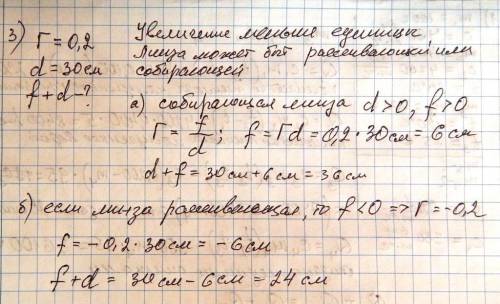 3) Г = 0,2
d = 30 см
f + d - ?
Увеличение меньше единицы
Линза может быт рассеивающей или
собирающей
а) собирающая линза d > 0, f > 0
Г = f/d ; f = Гd = 0,2 · 30 см = 6 см
d + f = 30 см + 6 см = 36 см
б) если линза рассеивающая, то f < 0 => Г = -0,2
f = -0,2 · 30 см = -6 см
f + d = 30 см - 6 см = 24 см